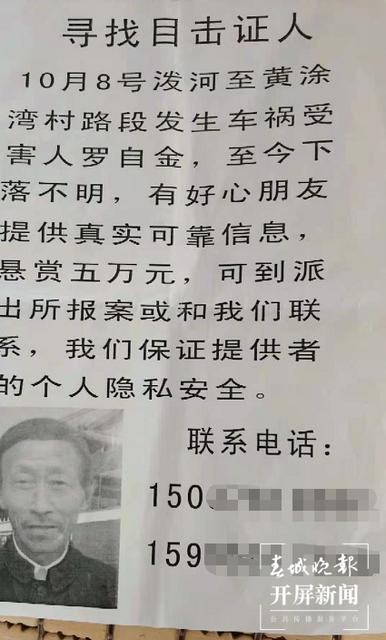 寻找目击证人
10月8号泼河至黄涂
湾村路段发生车祸受
害人罗自金，至今下
落不明，有好心朋友
提供真实可靠信息，
悬赏五万元，可到派
出所报案或和我们联
系，我们保证提供者
的个人隐私安全。
联系电话：
150
159
春城晚报
开屏新闻